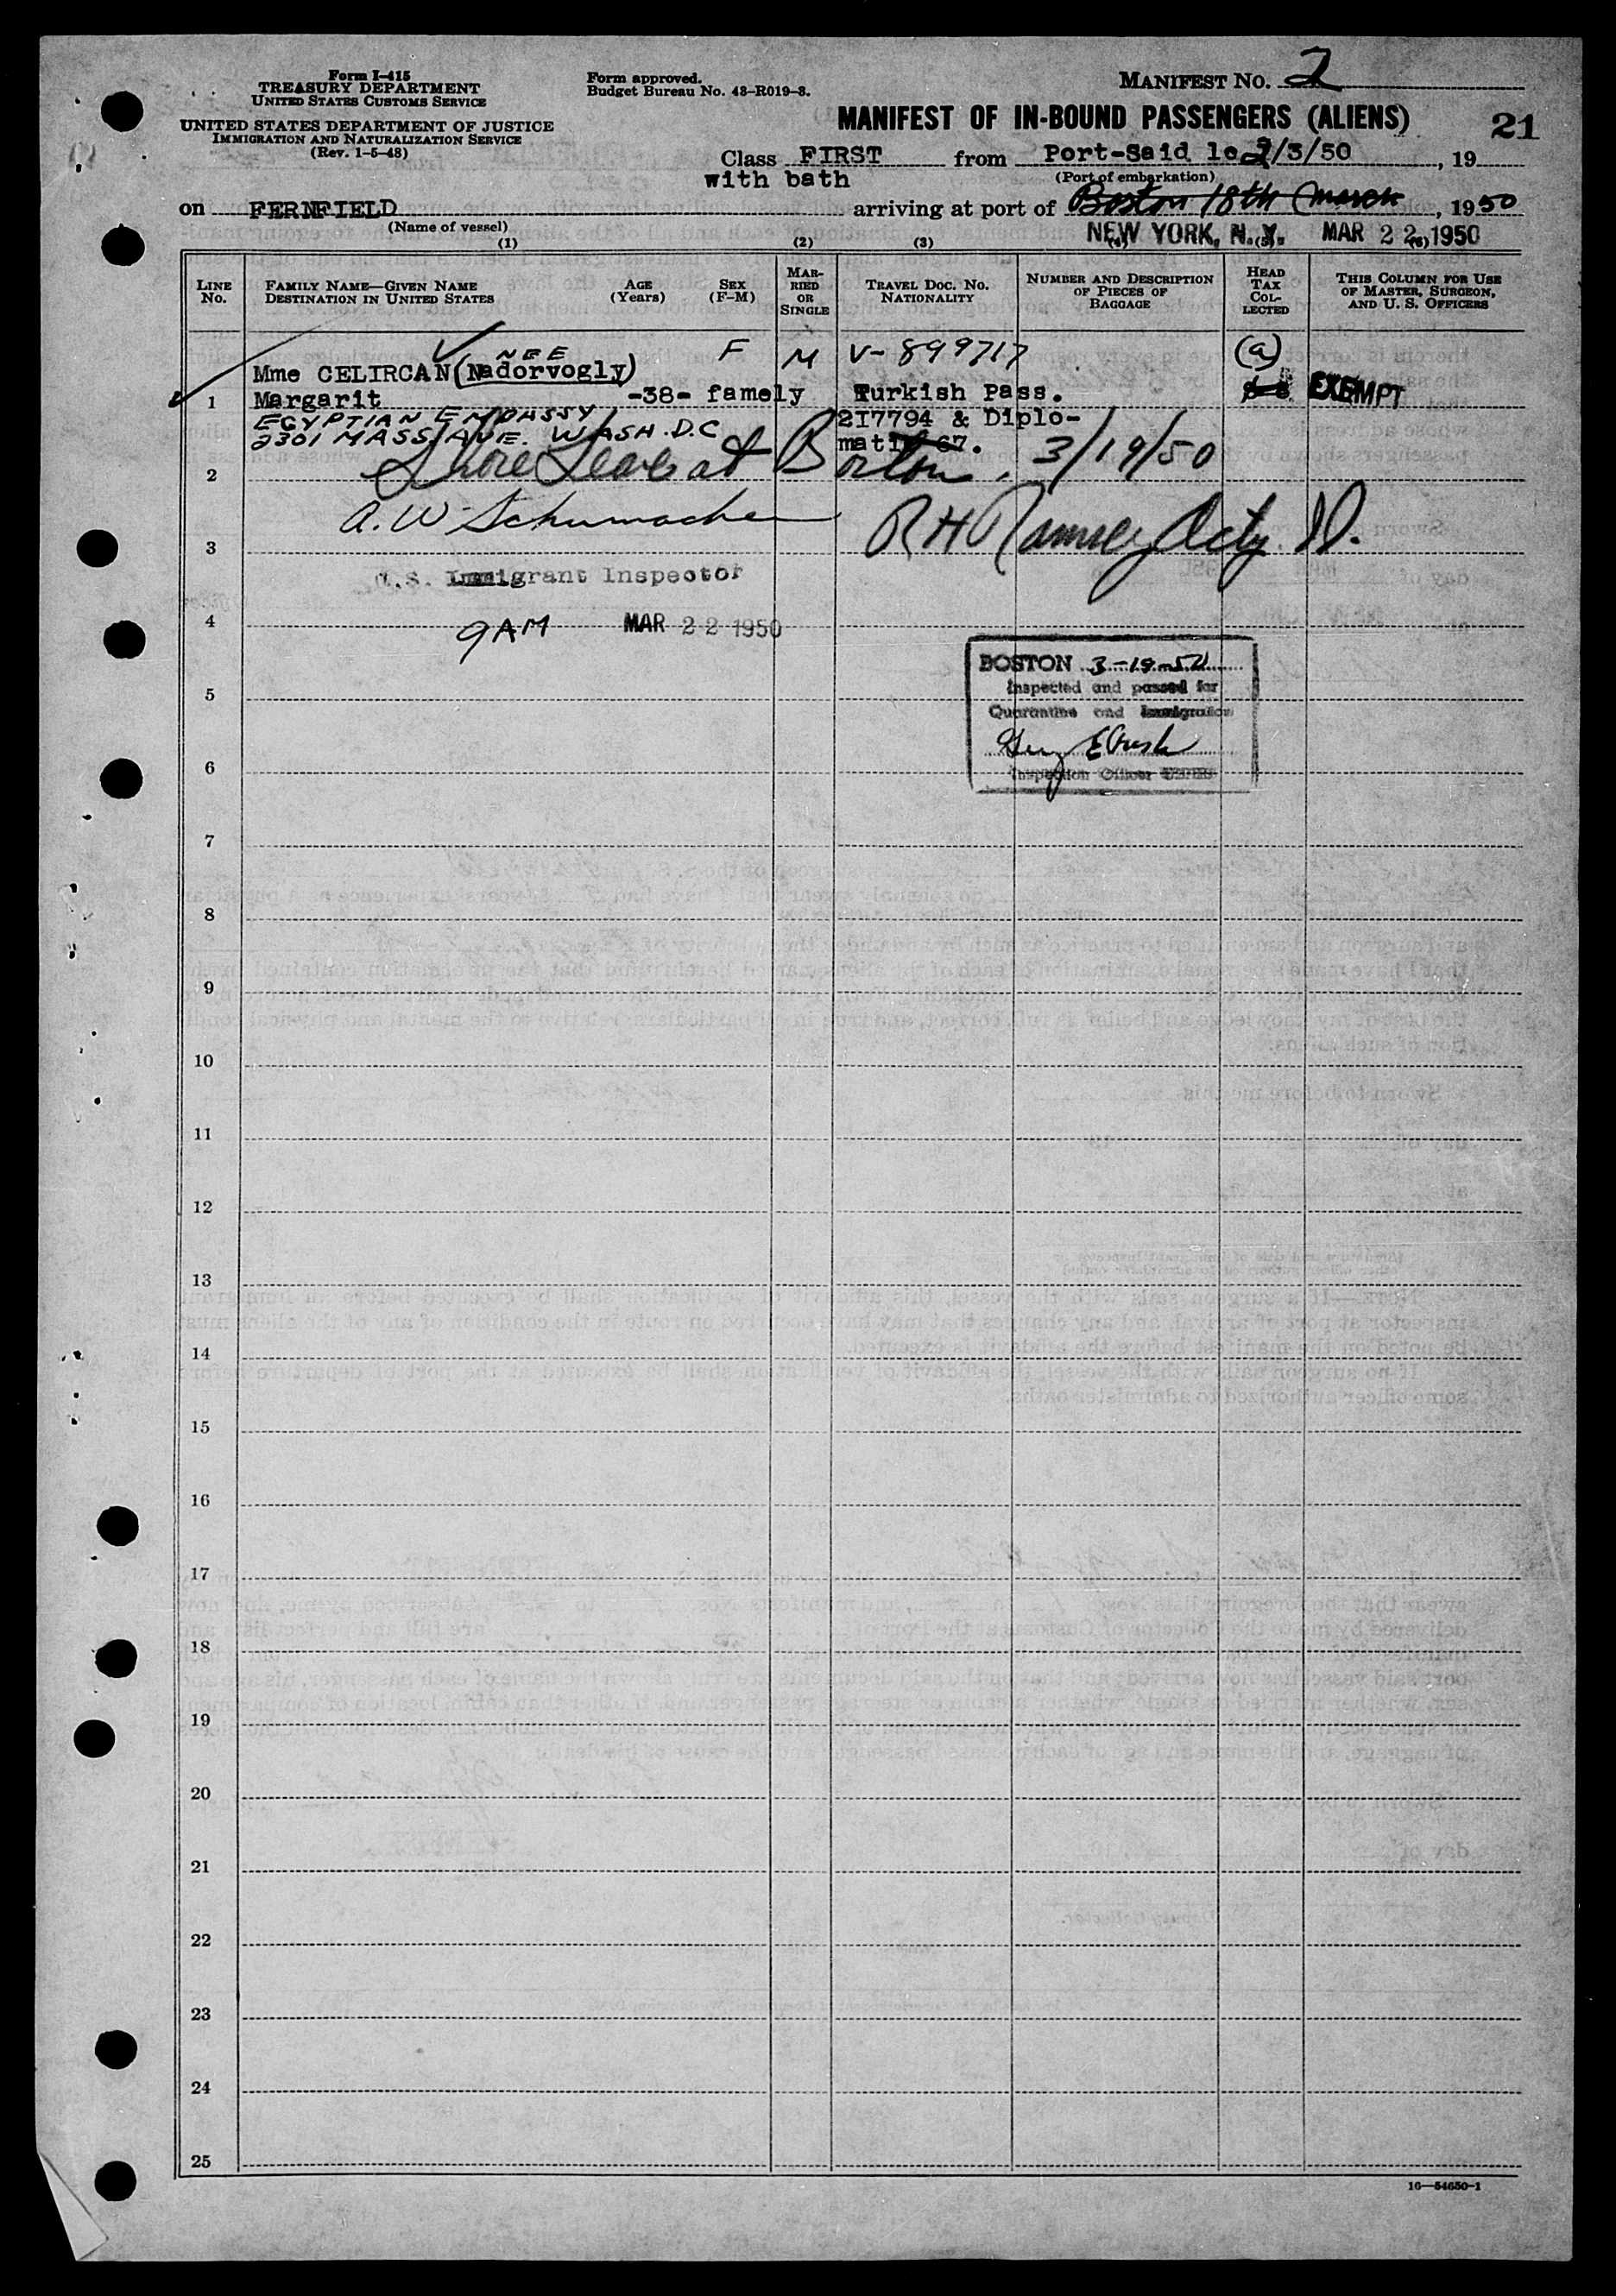 Form I-415
TREASURY DEPARTMENT
UNITED STATES CUSTOMS SERVICE
UNITED STATES DEPARTMENT OF JUSTICE
IMMIGRATION AND NATURALIZATION SERVICE
(Rev. 1-5-48)
Form approved.
Budget Bureau No. 43-R019-3.
MANIFEST NO. 2
MANIFEST OF IN-BOUND PASSENGERS (ALIENS)
21
Class FIRST from Port-Said le 2/3/50, 19
with bath
(Port of embarkation)
on FERNFIELD arriving at port of Boston 18th March, 1950
(Name of vessel)
NEW YORK, N.Y. MAR 22 1950
(1) (2) (3) (4) (5) (6)
LINE No.
FAMILY NAME—GIVEN NAME
DESTINATION IN UNITED STATES
AGE (Years)
SEX (F-M)
MARRIED OR SINGLE
TRAVEL DOC. NO.
NATIONALITY
NUMBER AND DESCRIPTION OF PIECES OF BAGGAGE
HEAD TAX COLLECTED
THIS COLUMN FOR USE OF MASTER, SURGEON, AND U. S. OFFICERS
NEE F M V-899717 (a)
Mme CELIRCAN (Nadorvogly)
1 Margarit -38- famely Turkish Pass. EXEMPT
EGYPTIAN EMBASSY 2I7794 & Diplo-
2301 MASS. AVE. WASH. D.C. matic 67.
2 Shore Leave at Boston. 3/19/50
A. W. Schumacher
R H Ramsey
3
U.S. Immigrant Inspector
4 9 AM MAR 22 1950
BOSTON 3-19-50
Inspected and passed for
Quarantine and Immigration
Inspection Officer
5
6
7
8
9
10
11
12
13
14
15
16
17
18
19
20
21
22
23
24
25
16—54650-1